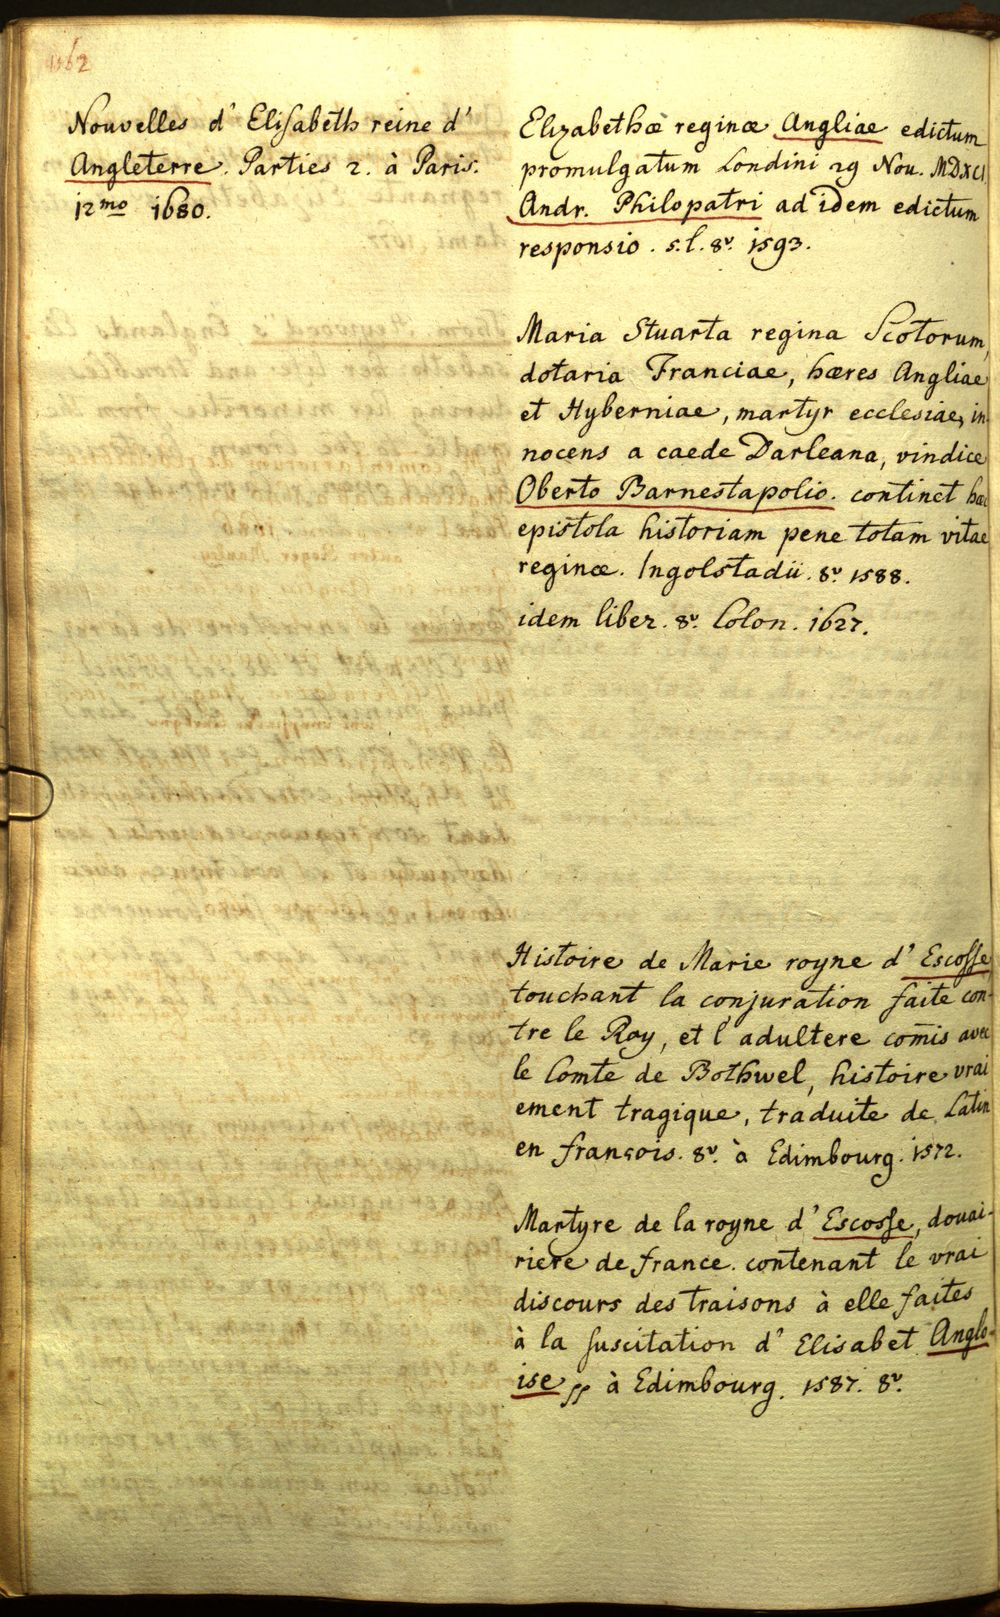 1162
Nouvelles d' Elisabeth reine d'
Angleterre. Parties 2. à Paris.
12mo 1680.
Elizabethæ reginæ Angliae edictum
promulgatum Londini 29 Nov. MDXCI.
Andr. Philopatri ad idem edictum
responsio. s.l. 8v. 1593.
Maria Stuarta regina Scotorum,
dotaria Franciae, hæres Angliae
et Hyberniae, martyr ecclesiae, in-
nocens a caede Darleana, vindice
Oberto Barnestapolio. continet hæc
epistola historiam pene totam vitae
reginæ. Ingolstadii. 8v. 1588.
idem liber. 8v. Colon. 1627.
Histoire de Marie royne d' Escosse
touchant la conjuration faite con-
tre le Roy, et l'adultere com̄is avec
le Comte de Bothwel, histoire vrai
ement tragique, traduite de Latin
en françois. 8v. à Edimbourg. 1572.
Martyre de la royne d' Escosse, douai-
riere de france. contenant le vrai
discours des traisons à elle faites
à la suscitation d' Elisabet Anglo-
ise pp à Edimbourg. 1587. 8v.